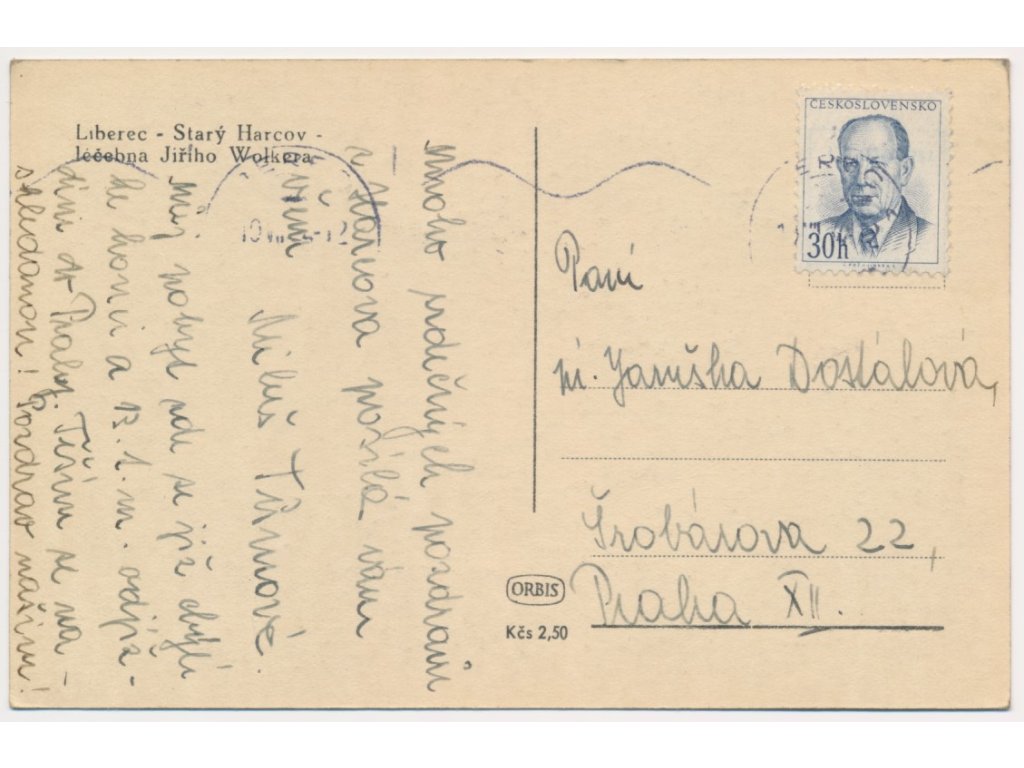 Liberec - Starý Harcov -
léčebna Jiřího Wolkera
Mnoho srdečných pozdravů
z Harcova posílá vám
všem
Miluš Tůmové.
Můj pobyt zde se již chýlí
ke konci a 13. t. m. odjíž-
dím do Prahy. Těším se na
shledanou! Pozdrav našim!
ČESKOSLOVENSKO
30h
Paní
pí. Jaruška Dostálová,
Šrobárova 22,
Praha XII.
ORBIS
Kčs 2,50